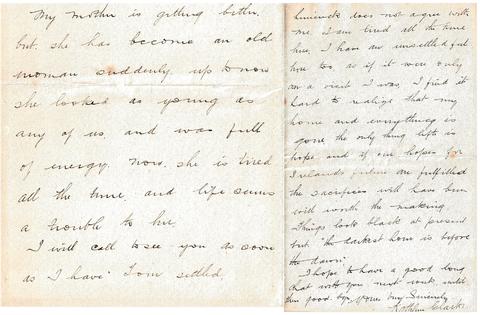 My mother is getting better.
but she has become an old
woman suddenly up to now
she looked as young as
any of us, and was full
of energy. Now she is tired
all the time and life seems
a trouble to her.
I will call to see you as soon
as I have Tom settled
Limerick does not agree with
me. I am tired all the time
here, I have an unsettled feel
here too as if it were only
on a visit I was, I find it
hard to realize that my
home and everything is
gone the only thing left is
hope and if our hopes for
Irelands future are fulfilled
the sacrifices will have been
well worth the making
Things look black at present
but "the darkest hour is before
the dawn".
I hope to have a good long
chat with you next week, until
then good bye, Yours very Sincerely
Kathleen Clarke